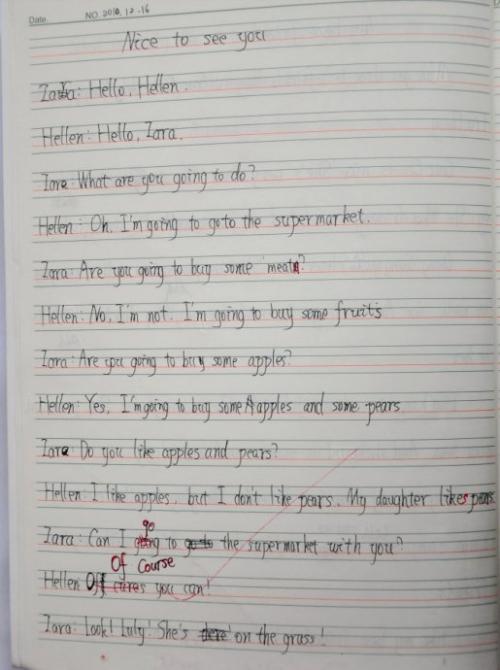 Date. NO. 2018.12.16
Nice to see you
Zara: Hello, Hellen.
Hellen: Hello, Zara.
Zara: What are you going to do?
Hellen: Oh, I'm going to goto the supermarket.
Zara: Are you going to buy some meat?
Hellen: No, I'm not. I'm going to buy some fruits
Zara: Are you going to buy some apples?
Hellen: Yes, I'm going to buy some apples and some pears
Zara: Do you like apples and pears?
Hellen: I like apples, but I don't like pears. My daughter likes pears.
go
Zara: Can I going to go to the supermarket with you?
Of Course
Hellen Off cures you can!
Zara: Look! Luly! She's there on the grass!